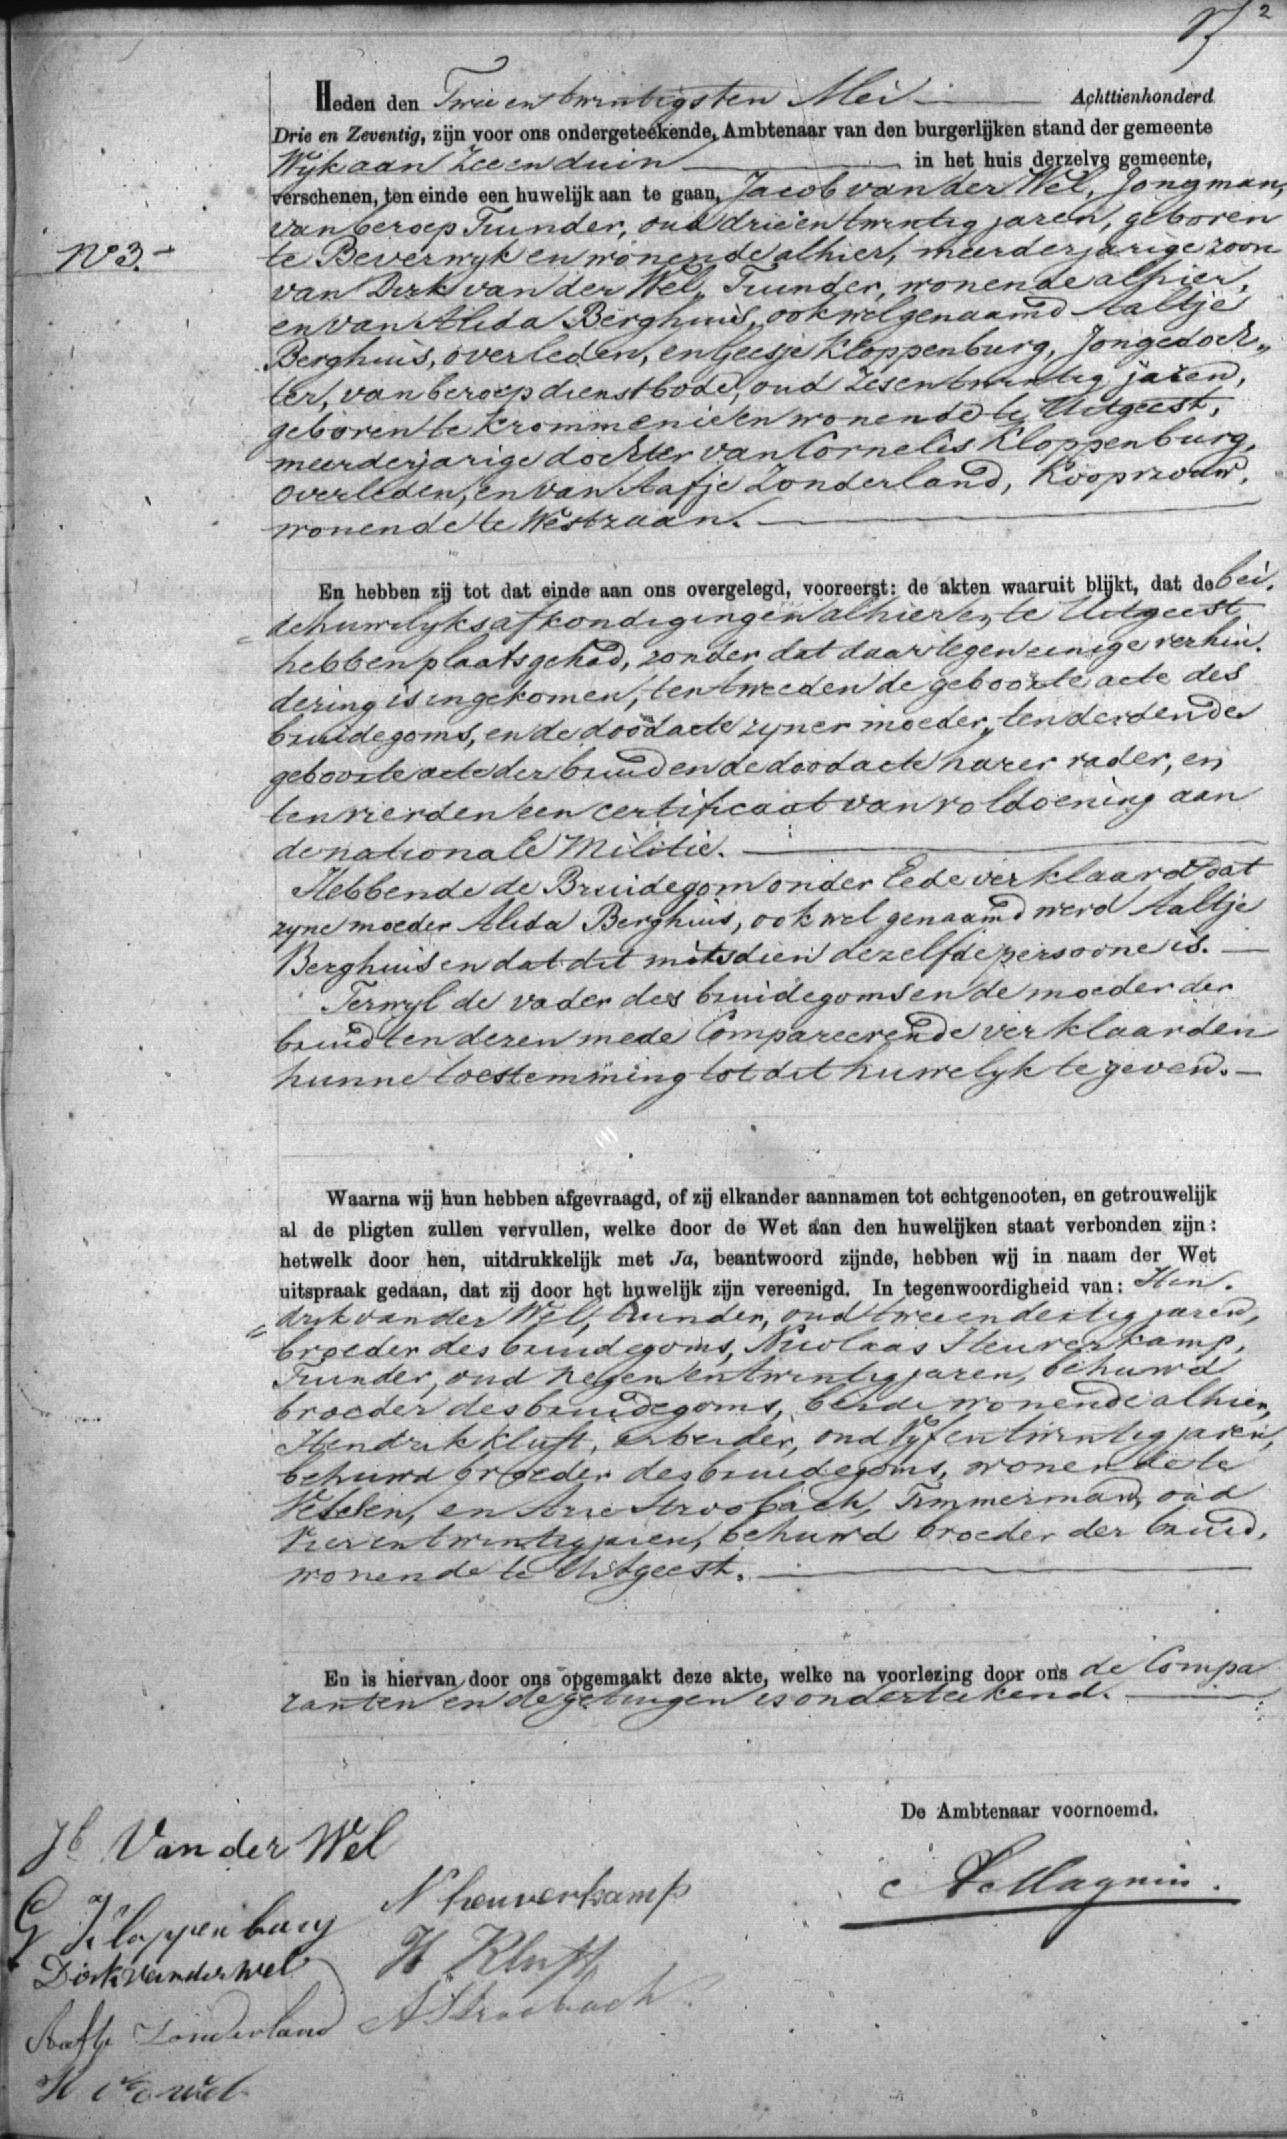 2
Heden den Twee en twintigsten Mei Achttienhonderd
Drie en Zeventig, zijn voor ons ondergeteekende, Ambtenaar van den burgerlijken stand der gemeente
Wijk aan Zee en duin in het huis derzelve gemeente,
verschenen, ten einde een huwelijk aan te gaan, Jacob van der Wel, Jongman,
van beroep Tuinder, oud drieëntwintig jaren, geboren
No 3.
te Beverwyk en wonende alhier, meerderjarige zoon
van Dirk van der Wel, Tuinder, wonende alhier,
en van Alida Berghuis, ook wel genaamd Aaltje
Berghuis, overleden, en Geesje Kloppenburg, Jongedoch„
ter, van beroep dienstbode, oud Zesentwintig jaren,
geboren te Krommenie en wonende te Uitgeest,
meerderjarige dochter van Cornelis Kloppenburg,
overleden, en van Aafje Zonderland, Koopvrouw,
wonende te Westzaan.
En hebben zij tot dat einde aan ons overgelegd, vooreerst: de akten waaruit blijkt, dat de bei-
de huwelyksafkondigingen alhier en te Uitgeest
hebben plaats gehad, zonder dat daartegen eenige verhin-
dering is ingekomen, ten tweeden de geboorte acte des
bruidegoms, en de doodacte zyner moeder, ten derden de
geboorte acte der bruid en de doodacte harer vader, en
ten vierden een certificaat van voldoening aan
de nationale Militie.
Hebbende de Bruidegom onder Eede verklaard dat
zyne moeder Alida Berghuis, ook wel genaamd werd Aaltje
Berghuis en dat dit mitsdien dezelfde persoone is.
Terwyl de vader des bruidegoms en de moeder der
bruid ten dezen mede Compareerende verklaarden
hunne toestemming tot dit huwelyk te geven.
Waarna wij hun hebben afgevraagd, of zij elkander aannamen tot echtgenooten, en getrouwelijk
al de pligten zullen vervullen, welke door de Wet aan den huwelijken staat verbonden zijn:
hetwelk door hen, uitdrukkelijk met Ja, beantwoord zijnde, hebben wij in naam der Wet
uitspraak gedaan, dat zij door het huwelijk zijn vereenigd. In tegenwoordigheid van: Hen-
drik van der Wel, Tuinder, oud tweeendertig jaren,
broeder des bruidegoms, Nicolaas Heuverkamp,
Tuinder, oud negen en twintig jaren, behuwd
broeder des bruidegoms, beide wonende alhier,
Hendrik Kluft, arbeider, oud Vyf en twintig jaren,
behuwd broeder des bruidegoms, wonende te
Velsen, en Arie Stroobach, Timmerman, oud
Vier en twintig jaren, behuwd broeder der bruid,
wonende te Uitgeest.
En is hiervan door ons opgemaakt deze akte, welke na voorlezing door ons de Compa
ranten en de getuigen is onderteekend.
De Ambtenaar voornoemd.
Jb Van der Wel
G Kloppenburg
N heuverkamp
Dirk van der Wel
H Kluft
Aafje Zonderland
A Stroobach